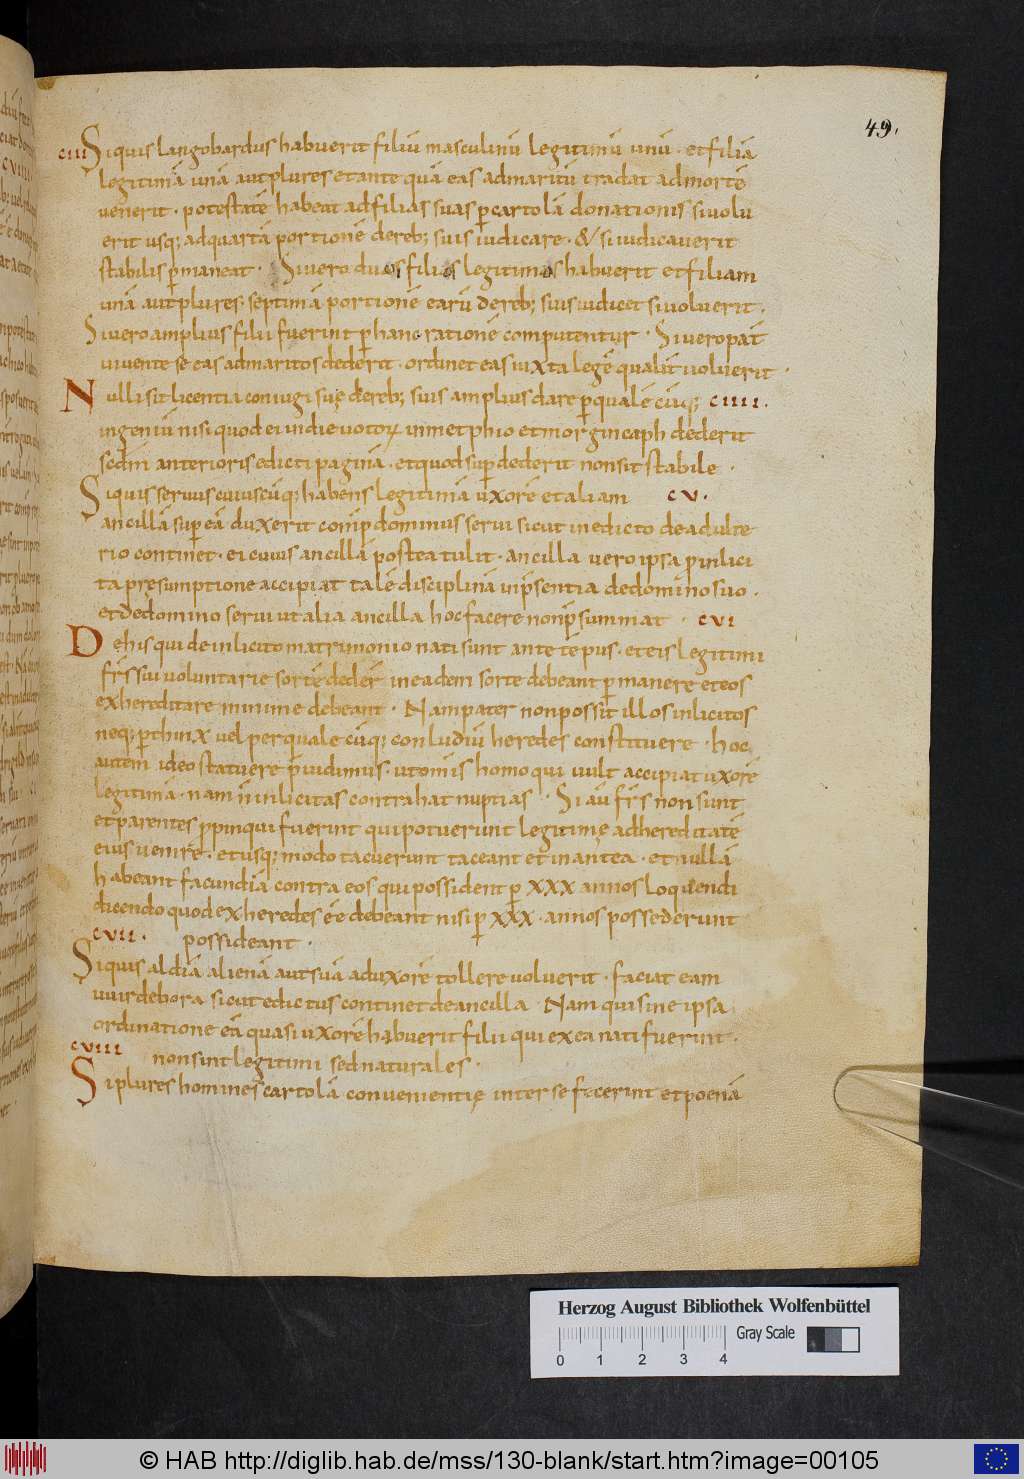 49.
CIII Siquis langobardus habuerit filiū masculinū legitimū unū · et filiā
legitimā unā aut plures et ante quā eas ad maritū tradat ad mortē
venerit · potestatē habeat ad filias suas p̱ cartolā donationis si uolu
erit usq; ad quartā portionē de reb; suis iudicare · & si iudicauerit
stabilis p̱maneat · Si uero duos filios legitimos habuerit et filiam
unā aut plures septimā portionē earū de reb; suis iudicet si uoluerit .
Si uero amplius filii fuerint p̱ hanc rationē computentur · Si uero pat̄
uiuente se eas ad maritos dederit · ordinet eas iuxta legē qualit̄ uoluerit ·
Nulli sit licentia coniugi suę de reb; suis amplius dare p̱ qualē cūq; CIIII .
ingeniū nisi quod ei in die uotorꝝ in metphio et morgincaph dederit
scdm̄ anterioris edicti paginā · et quod sup̱ dederit non sit stabile ·
Siquis seruus cuiuscūq; habens legitimā uxorē et aliam CV .
ancillā sup̱ eā duxerit conp̱ dominus serui sicut in edicto de adulte
rio continet · ei cuius ancillā postea tulit · ancilla vero ipsa p̱ inlici
ta pręsumptione accipiat talē disciplinā in p̄sentia de domino suo .
et de domino serui ut alia ancilla hoc facere non p̄summat · CVI
De his qui de inlicito matrimonio nati sunt ante tēpus · et eis legitimi
fr̄s sui voluntarie sortē dedēr in eadem sorte debeant p̱manere et eos
exhereditare minime debeant · Nam pater non possit illos inlicitos
neq; p̱ thinx vel per quale cūq; conludiū heredes constituere · hoc
autem ideo statuere p̄uidimus · ut omis homo qui uult accipiat uxorē
legitimā · nam n̄ inlicitas contrahat nuptias · Si aū fr̄s non sunt
et parentes p̱pinqui fuerint qui potuerunt legitimę ad hereditatē
eius uenire · et usq; modo tacuerunt taceant et in antea · et nullā
habeant facundiā contra eos qui possident p̱ XXX annos loquendi
dicendo quod exheredes eē debeant nisi p̱ XXX · annos possederunt
CVII . possideant ·
Siquis aldiā alienā aut suā ad uxorē tollere uoluerit · faciat eam
uuirdebora sicut edictus continet de ancilla · Nam qui sine ipsa
ordinatione eā quasi uxorē habuerit filii qui ex ea nati fuerint ·
CVIII non sint legitimi sed naturales ·
Si plures homines cartolā convenientię inter se fecerint et poenā
Herzog August Bibliothek Wolfenbüttel
0 1 2 3 4 Gray Scale
© HAB http://diglib.hab.de/mss/130-blank/start.htm?image=00105